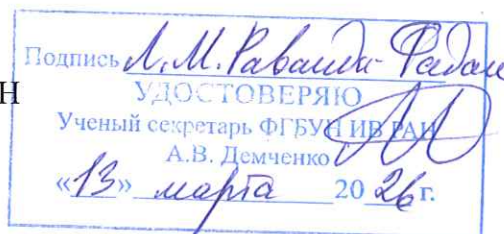 Подпись Л.М. Раванди-Фадаи
Н
УДОСТОВЕРЯЮ
Ученый секретарь ФГБУН ИВ РАН
А.В. Демченко
«13» марта 2026 г.